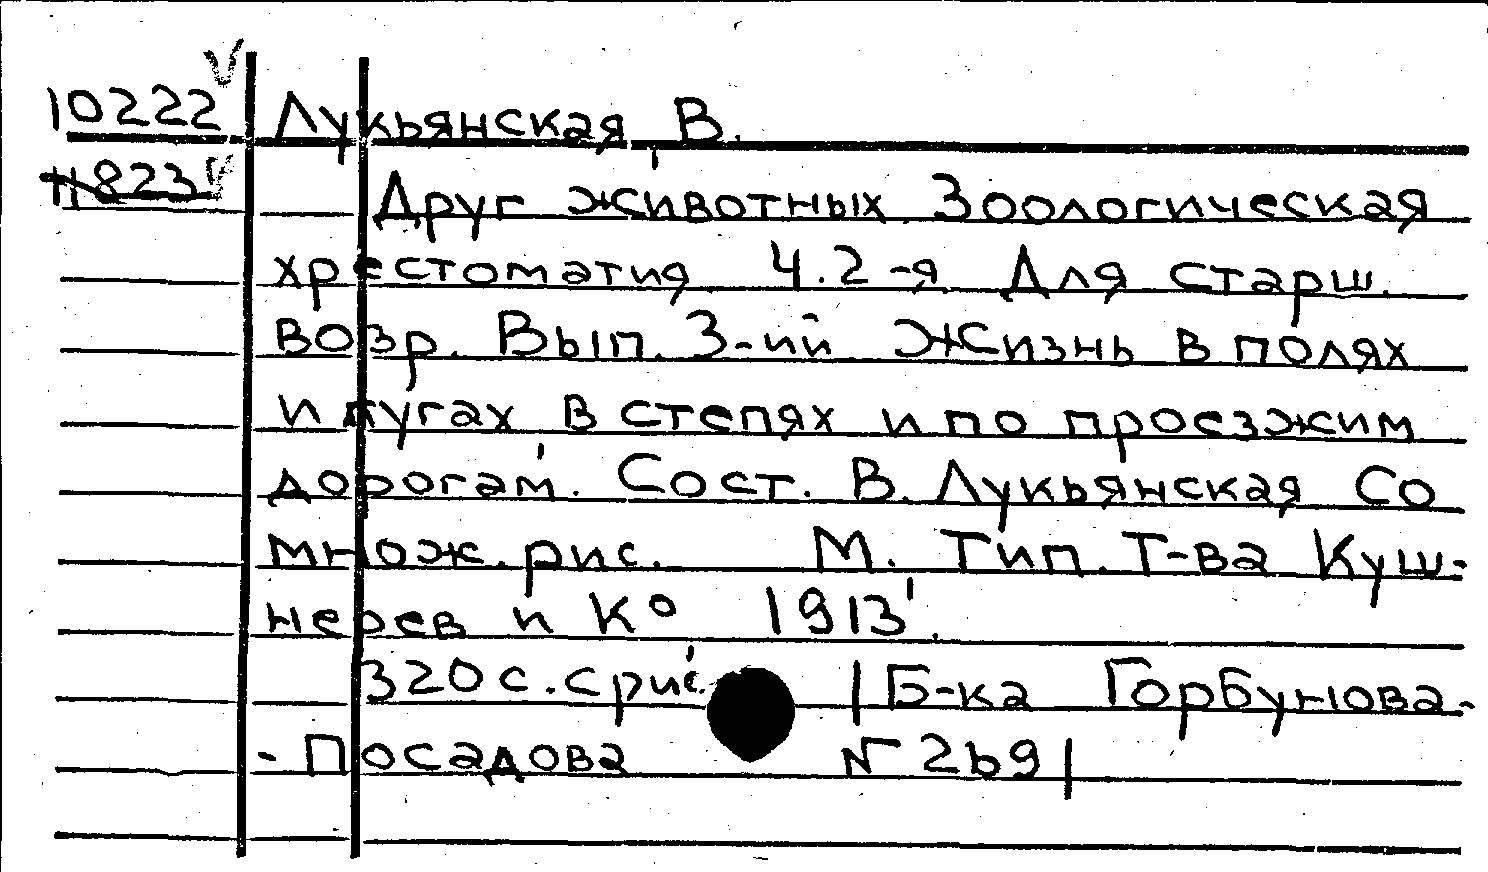 10222 Лукьянская, В.
11823 Друг животных. Зоологическая
хрестоматия. Ч.2-я Для старш.
возр. Вып. 3-ий Жизнь в полях
и лугах в степях и по проезжим
дорогам. Сост. В. Лукьянская Со
множ. рис. М. Тип. Т-ва Куш-
нерев и Кº 1913.
320 с. с рис. |Б-ка Горбунова-
-Посадова № 269|